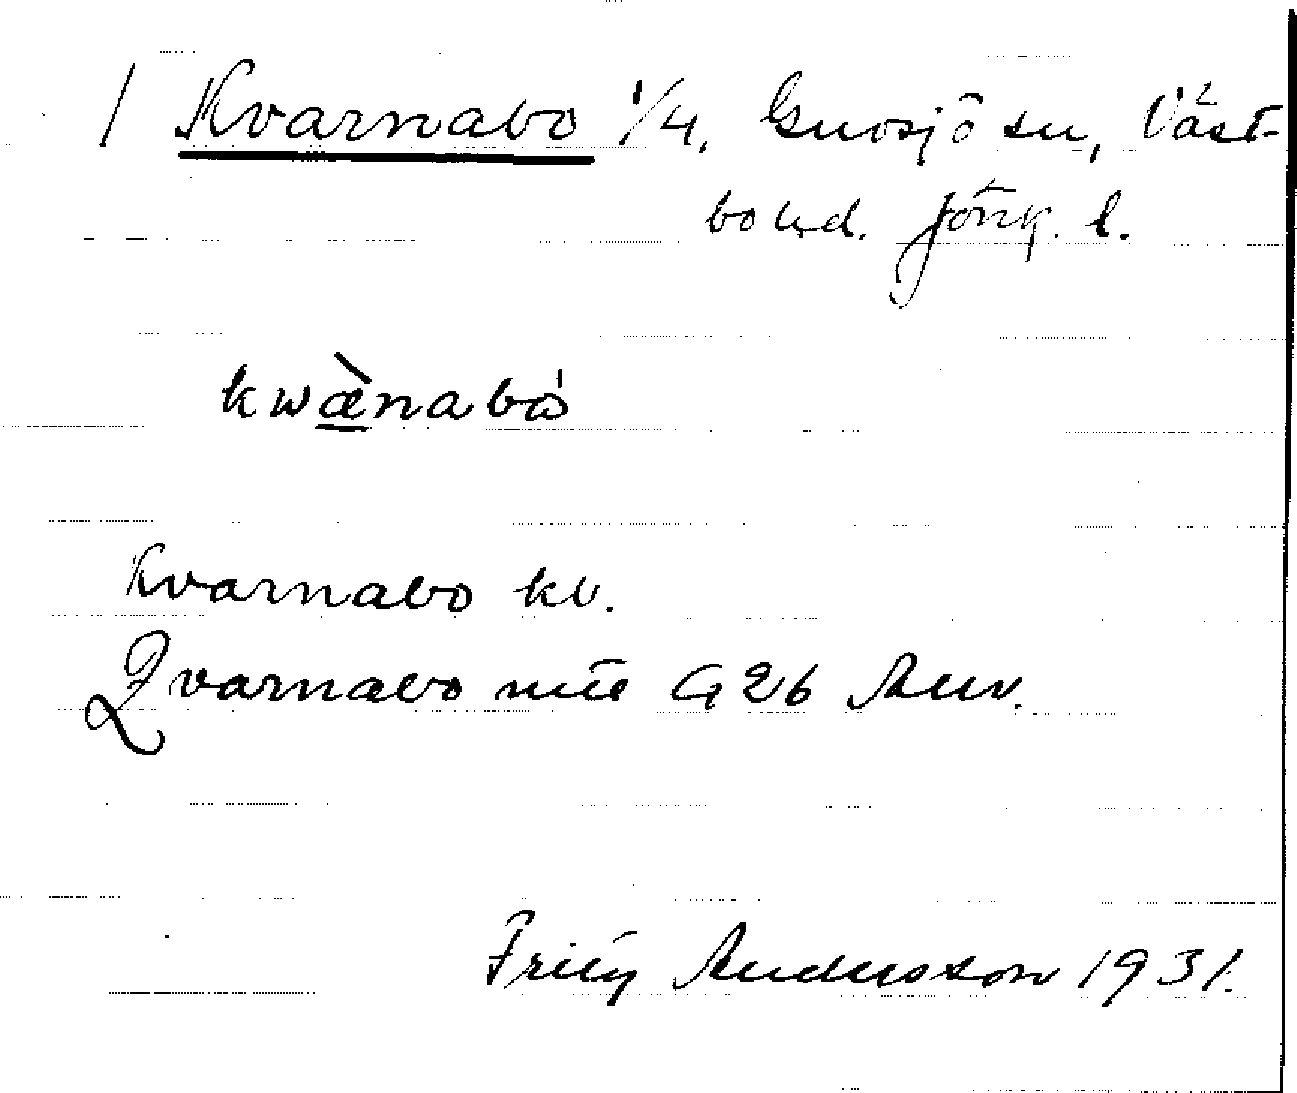 / Kvarnabo 1/4, Gnosjö sn, Väst-
bo hd. Jönk. l.
kwæ̀nabó
Kvarnabo kv.
Qvarnabo G 26
Fritz Andersson 1931.